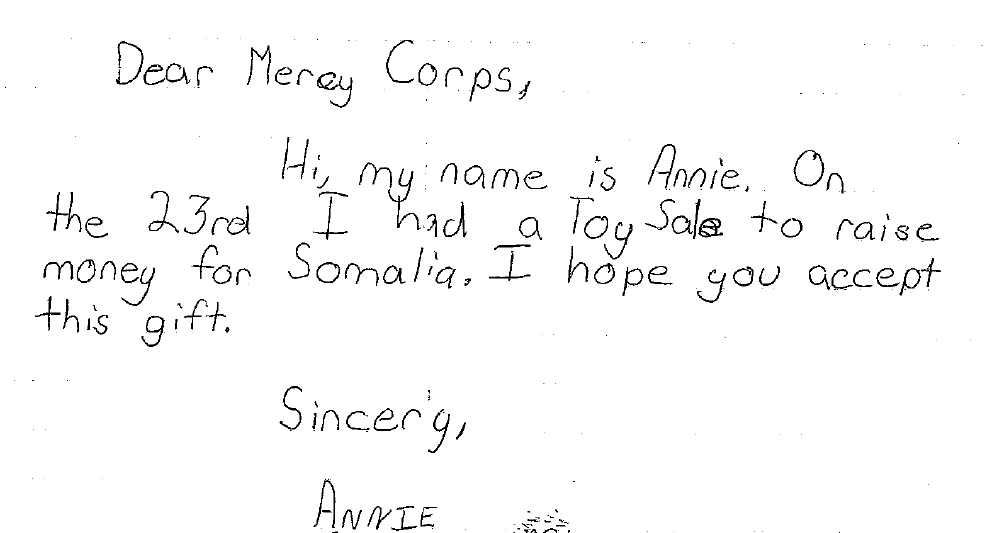 Dear Mercy Corps,
Hi, my name is Annie. On
the 23rd I had a Toy Sale to raise
money for Somalia. I hope you accept
this gift.
Sincer'g,
ANNIE